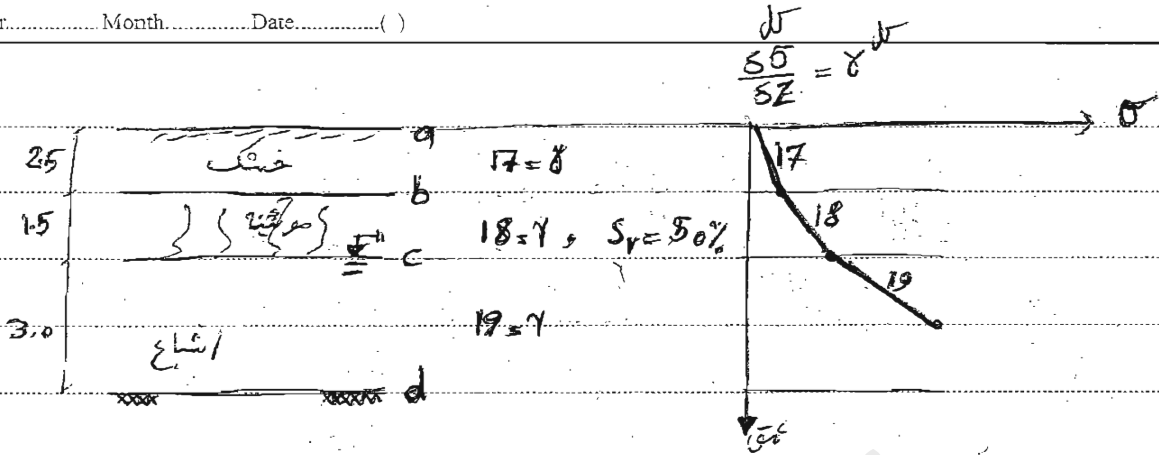 r............ Month............ Date............( )
δσ/δz = γ
σ
a
2.5 خشک 17=γ 17
b
1.5 موئینه 18=γ , Sr=50% 18
c
3.0 اشباع 19=γ 19
d
عمق